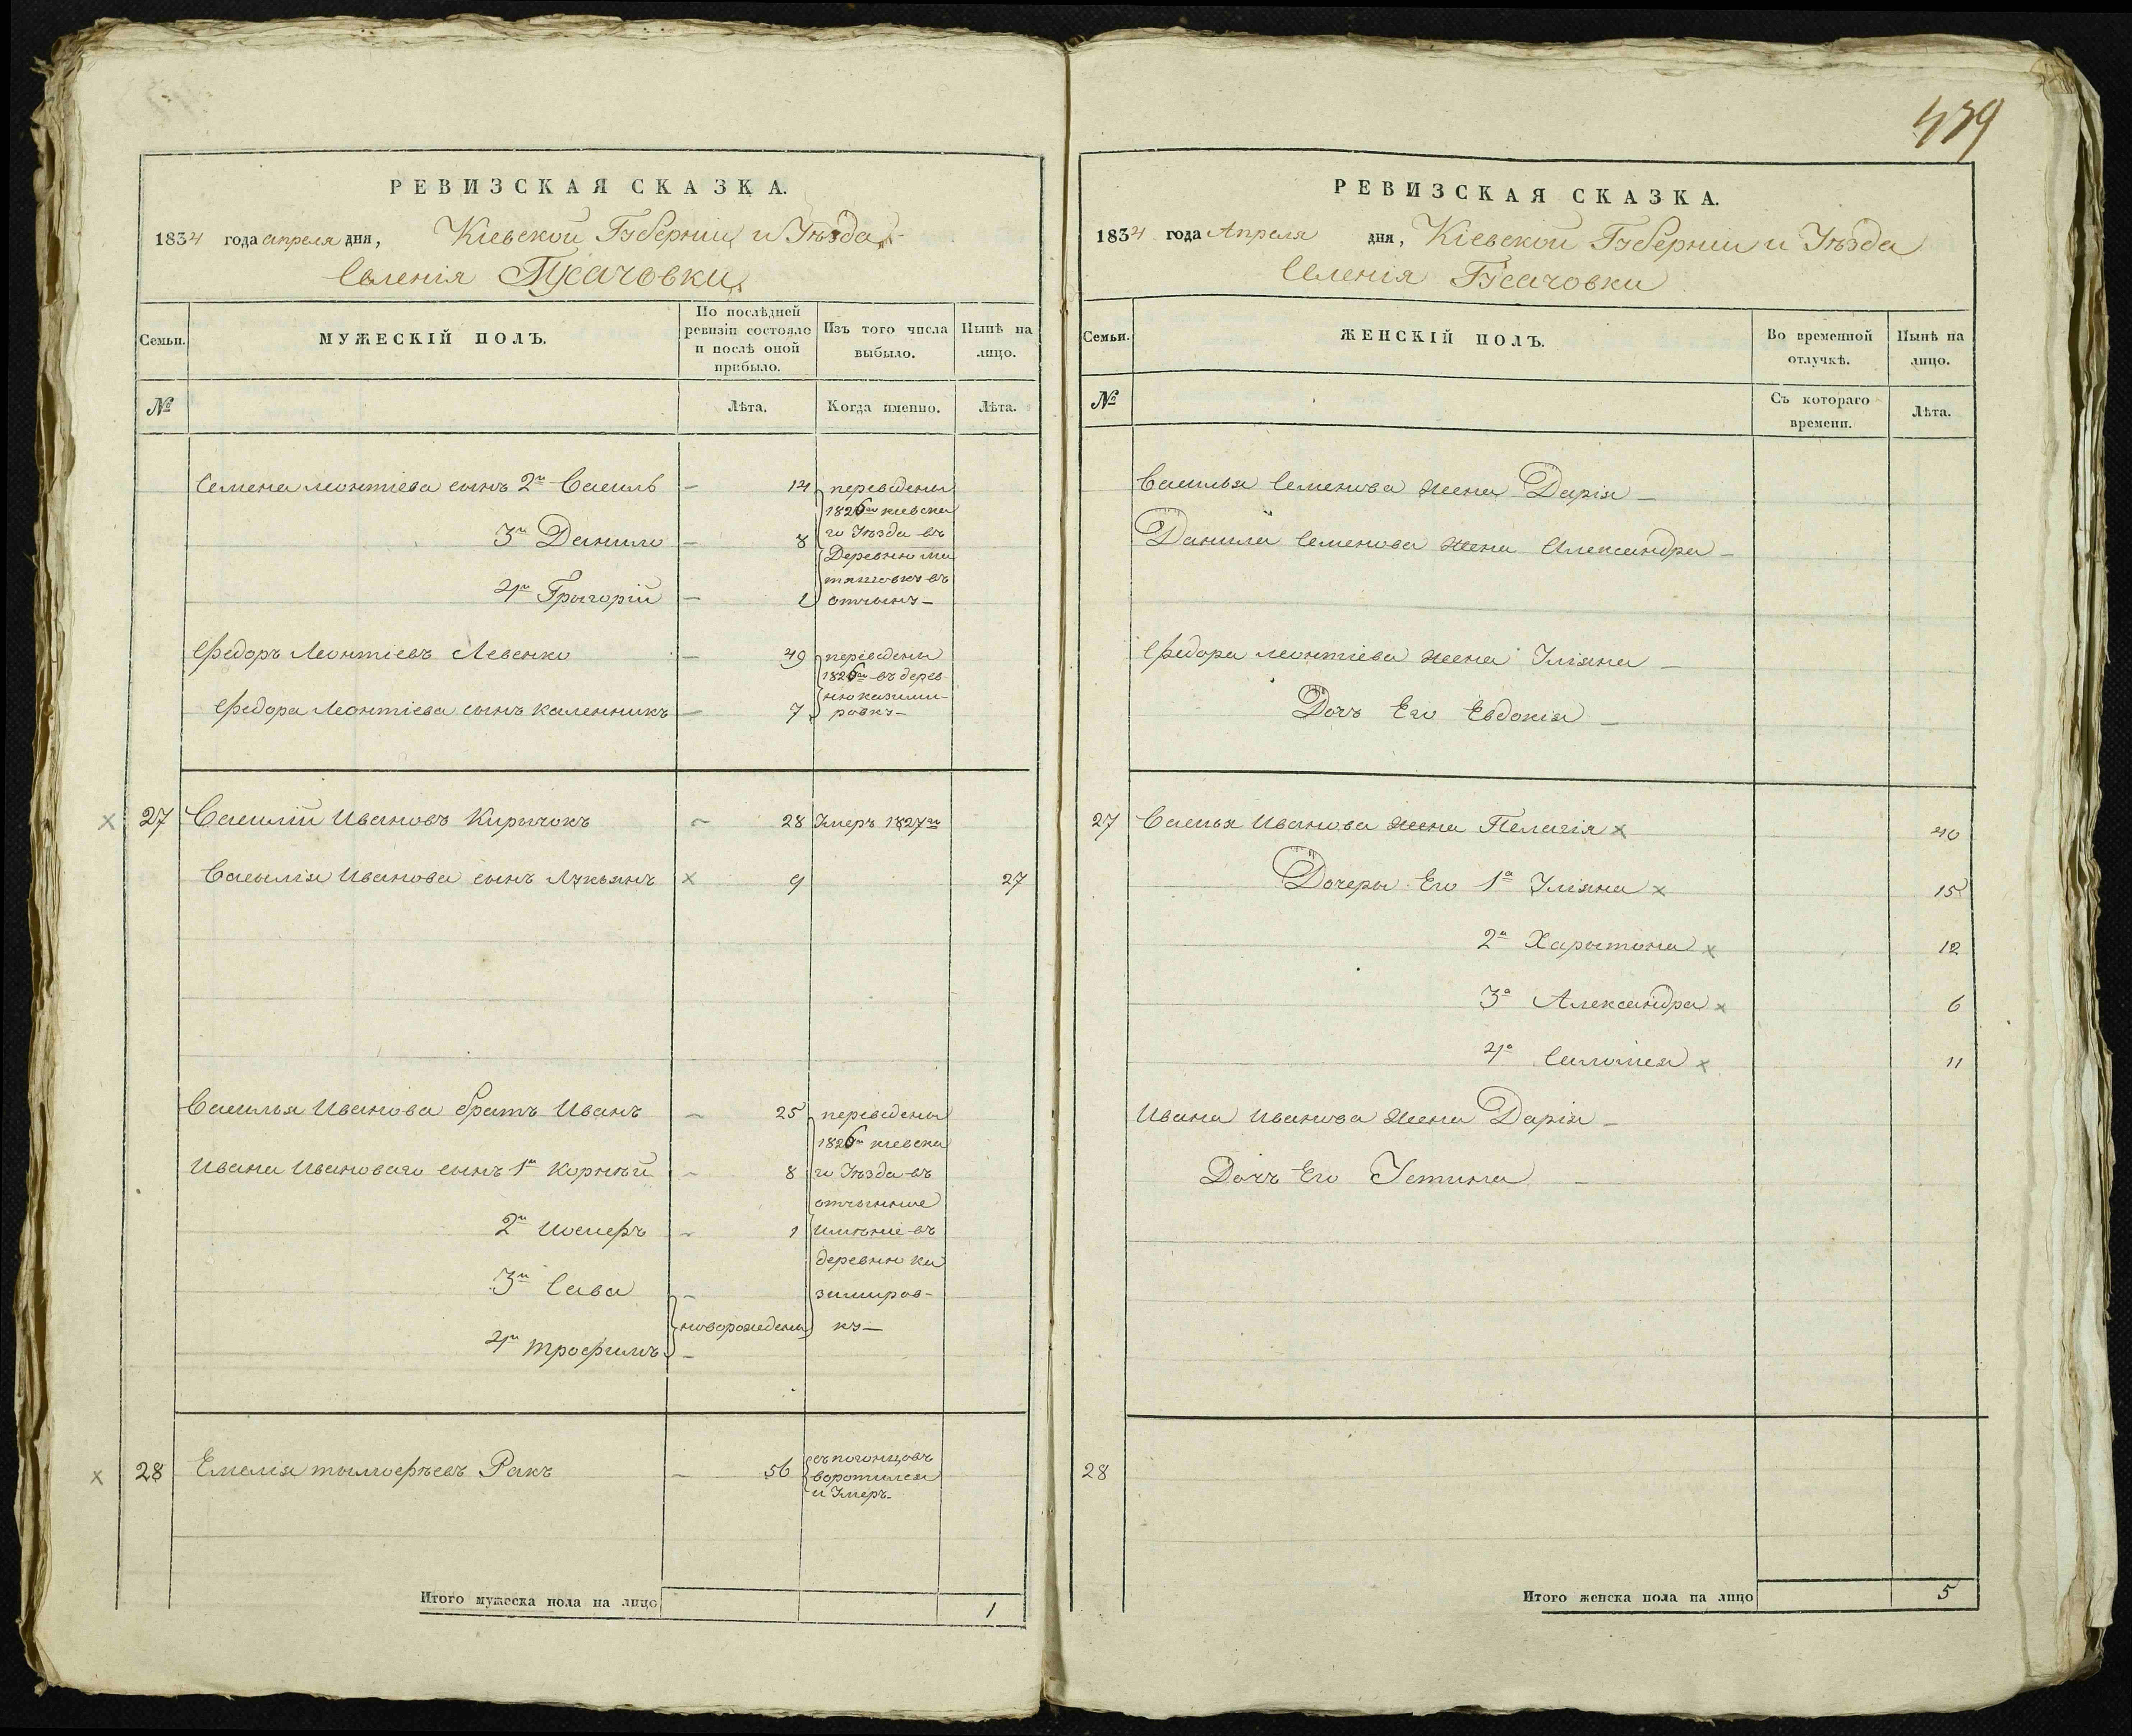 439
РЕВИЗСКАЯ СКАЗКА.
1834 года апреля дня, Кіевской Губерніи и Уѣзда
Селенія Гусачовки
Семьи.
МУЖЕСКІЙ ПОЛЪ.
По послѣдней ревизіи состояло и послѣ оной прибыло.
Изъ того числа выбыло.
Нынѣ на лицо.
№
Лѣта.
Когда именно.
Лѣта.
Семена Леонтіева сынъ 2й Василь – 14
переведены
1826го киевска
го Уѣзда въ
Деревню
3й Данило – 8
4й Грыгорій – 1
Федоръ Леонтіевъ Левенко – 49
переведены
1826го въ дерев
ню казими-
ровку-
Федора Леонтіева сынъ каленникъ – 7
27 Василій Ивановъ Кирычокъ – 28 Умеръ 1827го
Васылія Иванова сынъ Лукьянъ x 9 27
Василья Иванова братъ Иванъ – 25
переведены
1826го киевска
го Уѣзда въ
отчынные
имѣние въ
деревню ка
зимиров-
ку-
Ивана Ивановаго сынъ 1й Корнѣй – 8
2й Иосифъ – 1
3й Сава –
4й Трофимъ –
новорождены
28 Емелія тымофѣевъ Ракъ – 56
воротился
и Умеръ-
Итого мужеска пола на лицо 1
РЕВИЗСКАЯ СКАЗКА.
1834 года Апреля дня, Кіевской Губерніи и Уѣзда
Селенія Гусачовки
Семьи.
ЖЕНСКІЙ ПОЛЪ.
Во временной отлучкѣ.
Нынѣ на лицо.
№
Съ котораго времени.
Лѣта.
Василья Семенова жена Дарія –
Данила Семенова жена Александра –
Федора Леонтіева жена Уліяна –
Дочъ Его Евдокія –
27 Василья Иванова жена Пелагія x 40
Дочеры Его 1а Уліяна x 15
2а Харытына x 12
3а Александра x 6
4а Саломея x 11
Ивана Иванова жена Дарія –
Дочъ Его Устина –
28
Итого женска пола на лицо 5